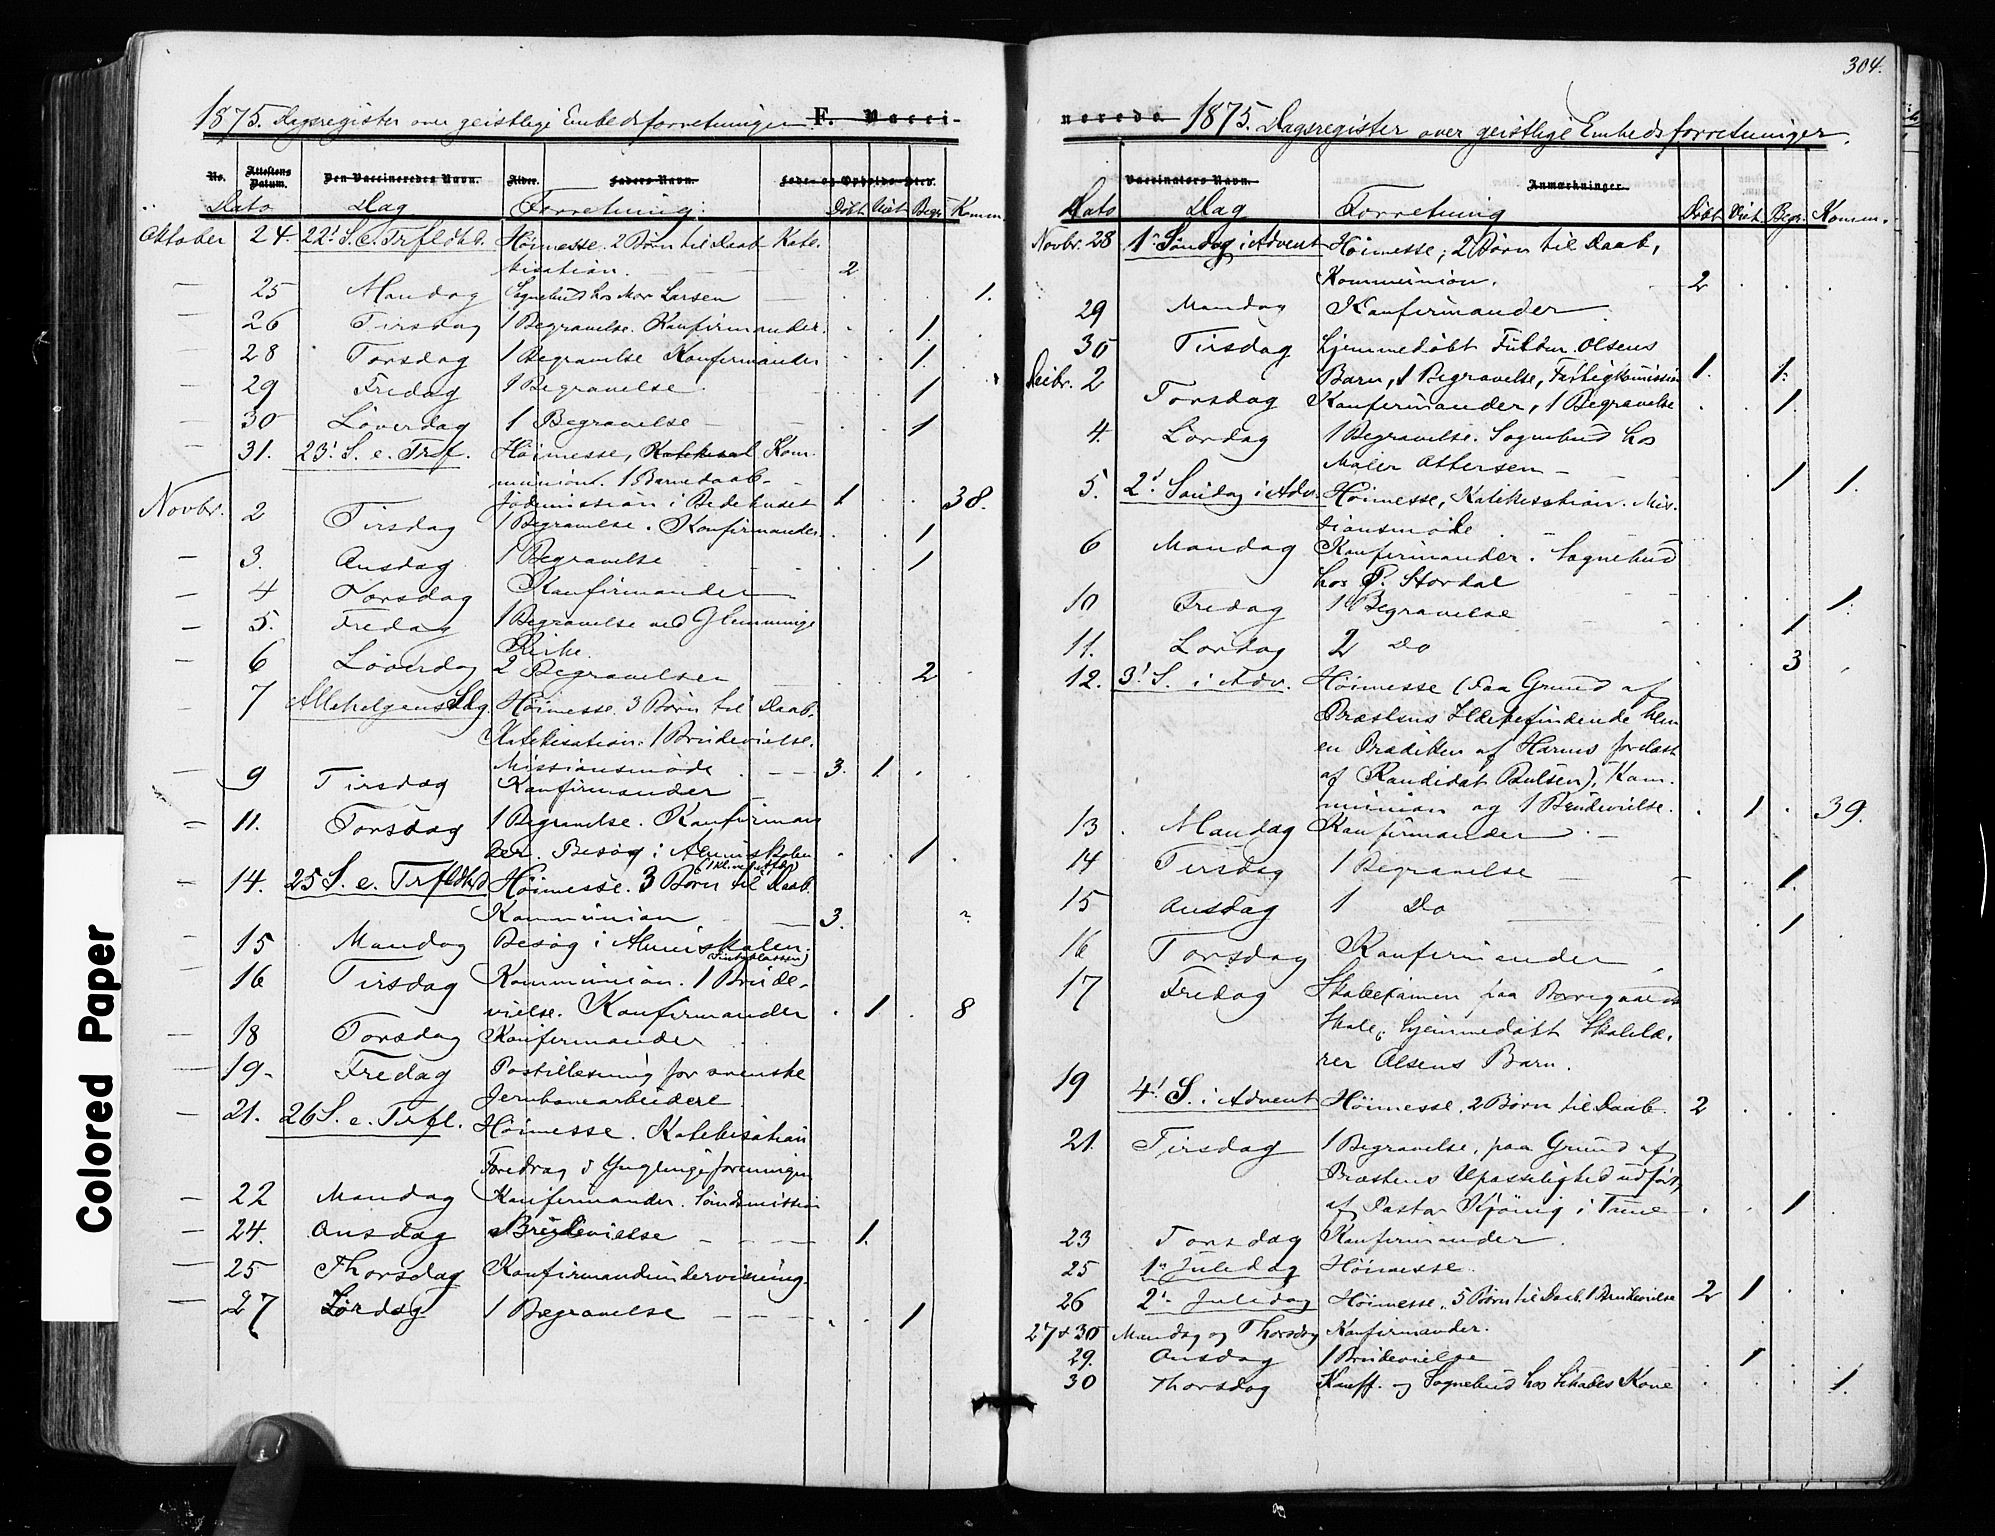 304.
1875. Dagsregister over geistlige Embedsforretninger. F. Vacci-
No. Attestens Datum. Den Vaccineredes Navn. Alder. Faders Navn. Føde- og Opholds-Sted.
Dato Dag Forretning: Døbt Viet Begr. Komm.
Oktober 24. 22! S. e. Trfldhd. Höimesse. 2 Börn til Daab Kate-
kisation. 2
25 Mandag Sognebud hos Mor Larsen 1.
26 Tirsdag 1 Begravelse. Konfirmander. 1.
28 Torsdag 1 Begravelse Konfirmander 1.
29 Fredag 1 Begravelse. 1
30 Löverdag 1 Begravelse 1
31. 23! S. e. Tref. Höimesse, Kom-
munion. 1 Barnedaab.
Jødemission i Bedehuset 1 38.
Novbr. 2 Tirsdag 1 Begravelse. Konfirmander. 1
3. Onsdag 1 Begravelse 1
4 Torsdag Konfirmander
5. Fredag 1 Begravelse ved Glemminge
Kirke.
6 Löverdag 2 Begravelser 2
7 Allehelgensdag Höimesse. 3 Börn til Daab.
Katekisation. 1 Brudevielse.
Missionsmöde 3. 1.
9 Tirsdag Konfirmander
11. Torsdag 1 Begravelse. Konfirman
der. Besög i Almueskolen 1
14. 25 S. e. Trefldhd Höimesse. 3 Börn til Daab.
Kommunion 3.
15 Mandag Besög i Almueskolen.
16 Tirsdag Kommunion. 1 Brude-
vielse. Konfirmander 1 8
18 Torsdag Konfirmander
19 Fredag Postillesning for svenske
Jernbanearbeidere
21. 26 S. e. Trefl. Höimesse. Katekisation
Foredrag i Ynglingeforeningen
22 Mandag Konfirmander. Söndmission
24. Onsdag Brudevielse 1.
25 Thorsdag Konfirmandundervisning.
27 Lørdag 1 Begravelse 1
nerede 1875. Dagsregister over geistlige Embedsforretninger.
Vaccinators Navn. Anmærkninger.
Dato Dag Forretning Döbt Viet Begr. Komm.
Novbr. 28 1! Söndag i Advent Höimesse; 2 Börn til Daab,
Kommunion. 2
29 Mandag Konfirmander
30 Tirsdag hjemmedöbt Olsens
Barn, 1 Begravelse, 1. 1.
Decbr. 2 Torsdag Konfirmander, 1 Begravelse 1
4. Lördag 1 Begravelse. Sognebud hos
Maler Ottersen 1 1.
5. 2! Söndag i Adv. Höimesse, Katekisation. Mis-
sionsmöde
6 Mandag Konfirmander. Sognebud
hos P. Stordal 1.
10 Fredag 1 Begravelse 1
11. Lördag 2 Do 3
12. 3! S. i Adv. Höimesse (Paa Grund af
Præstens Ildebefindende blev
en Prædiken af Harms forelæst
af Kandidat Paulsen), Kom-
munion og 1 Brudevielse. 1 39.
13. Mandag Konfirmander
14 Tirsdag 1 Begravelse 1.
15 Onsdag 1 Do 1
16 Torsdag Konfirmander
17 Fredag Skoleexamen paa Borregaards
Skole, hjemmedöbt Skolelæ-
rer Olsens Barn.
19 4! S. i Advent Höimesse. 2 Börn til Daab. 2
21. Tirsdag 1 Begravelse, paa Grund af
Præstens Upasselighed udfört
af Pastor Kjönig i Tune 1
23 Torsdag Konfirmander.
25 1! Juledag Höimesse.
26 2! Juledag Höimesse. 5 Börn til Daab. 1 Brudevielse 2 1
27 & 30 Mandag og Thorsdag Konfirmander.
29. Onsdag 1 Brudevielse 1
30 Thorsdag Konff. og Sognebud hos Kone 1.
Colored Paper